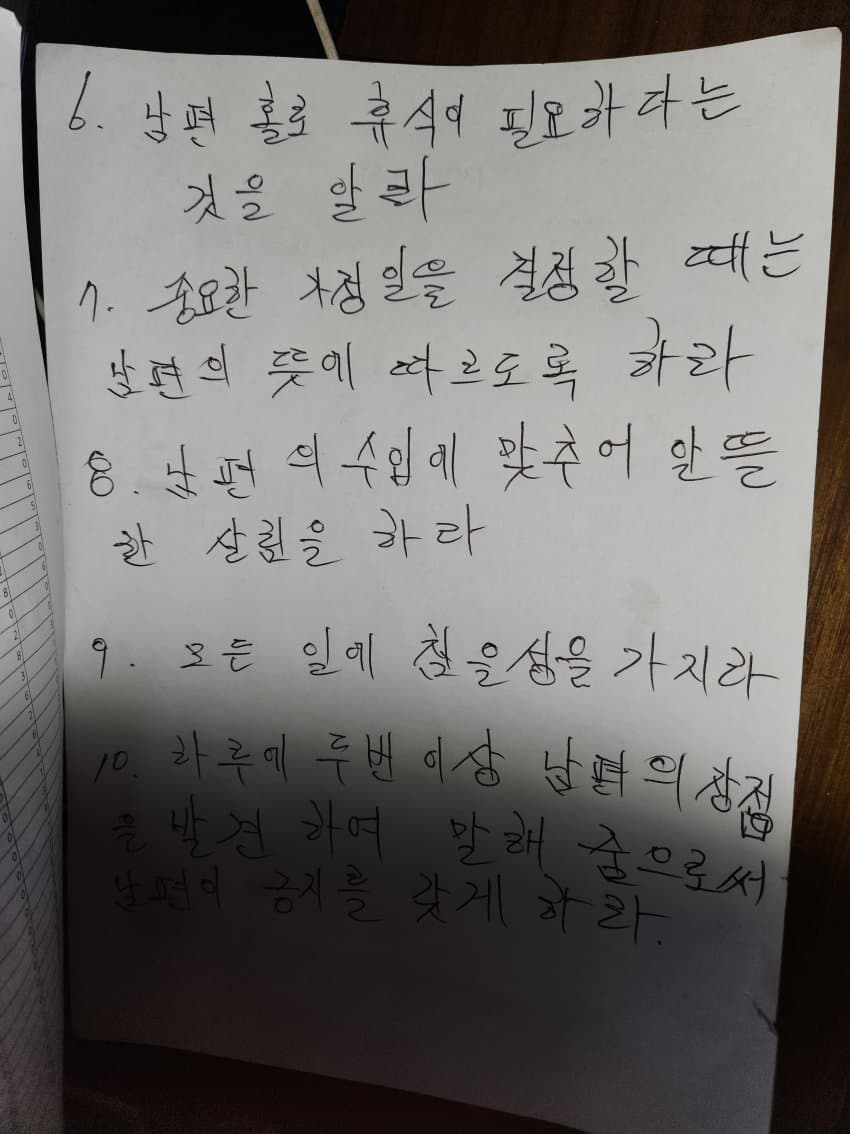 6. 남편 홀로 휴식이 필요하다는
것을 알라
7. 중요한 가정일을 결정할 때는
남편의 뜻에 따르도록 하라
8. 남편의 수입에 맞추어 알뜰
한 살림을 하라
9. 모든 일에 참을성을 가지라
10. 하루에 두번 이상 남편의 장점
을 발견 하여 말해 줌으로써
남편이 긍지를 갖게 하라.